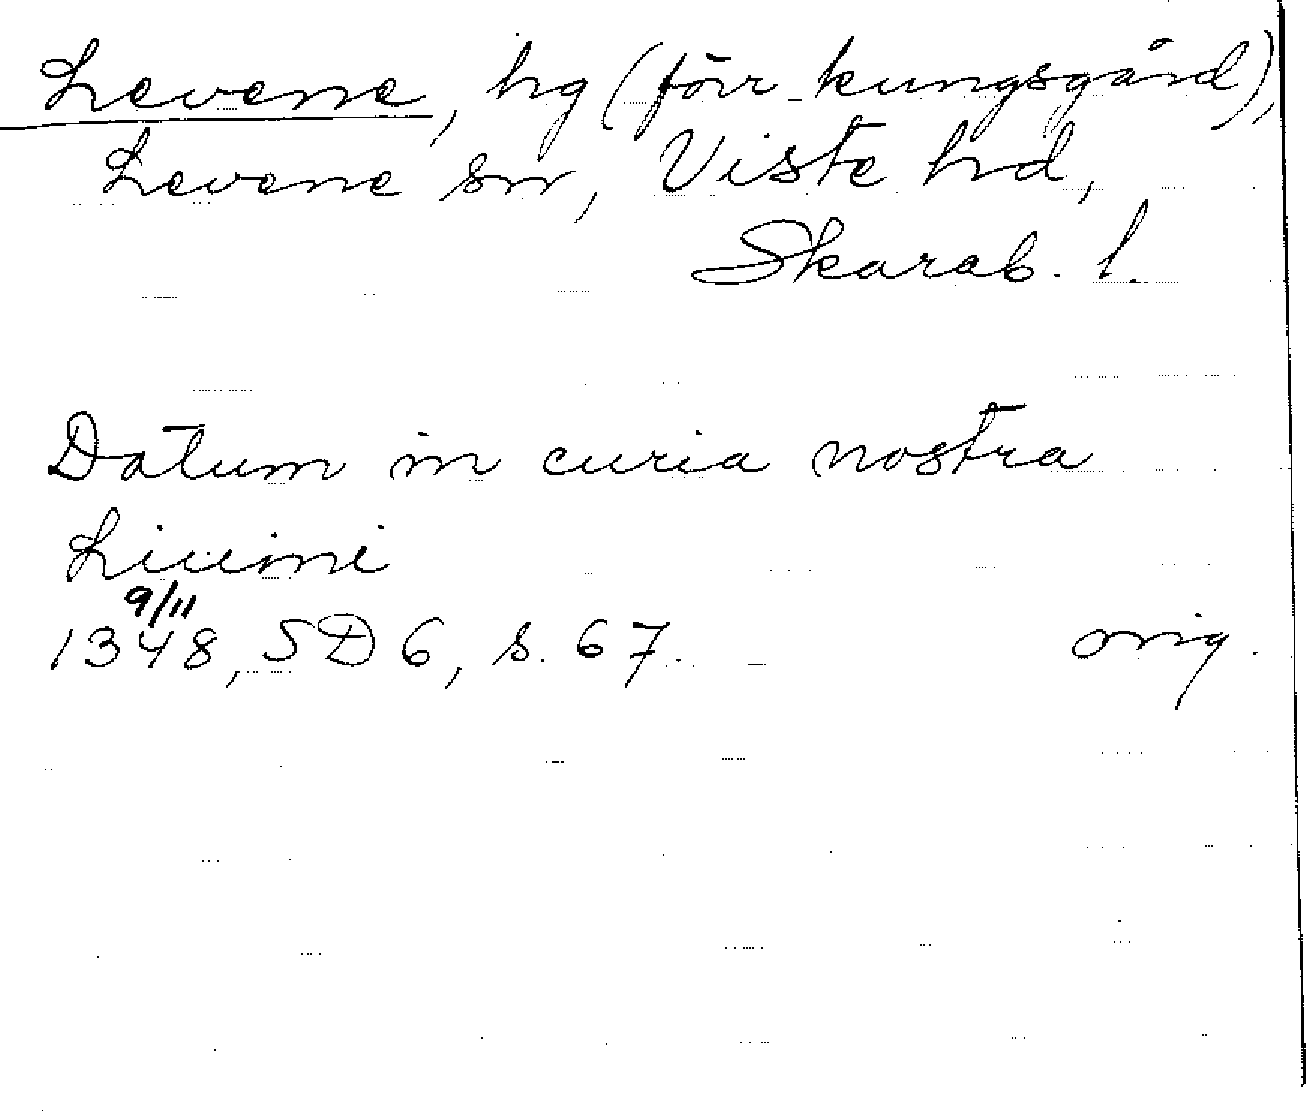 Levene, hg (förr kungsgård),
Levene sn, Viste hd,
Skarab. l.
Datum in curia nostra
9/11
1348, SD 6, s. 67. orig.